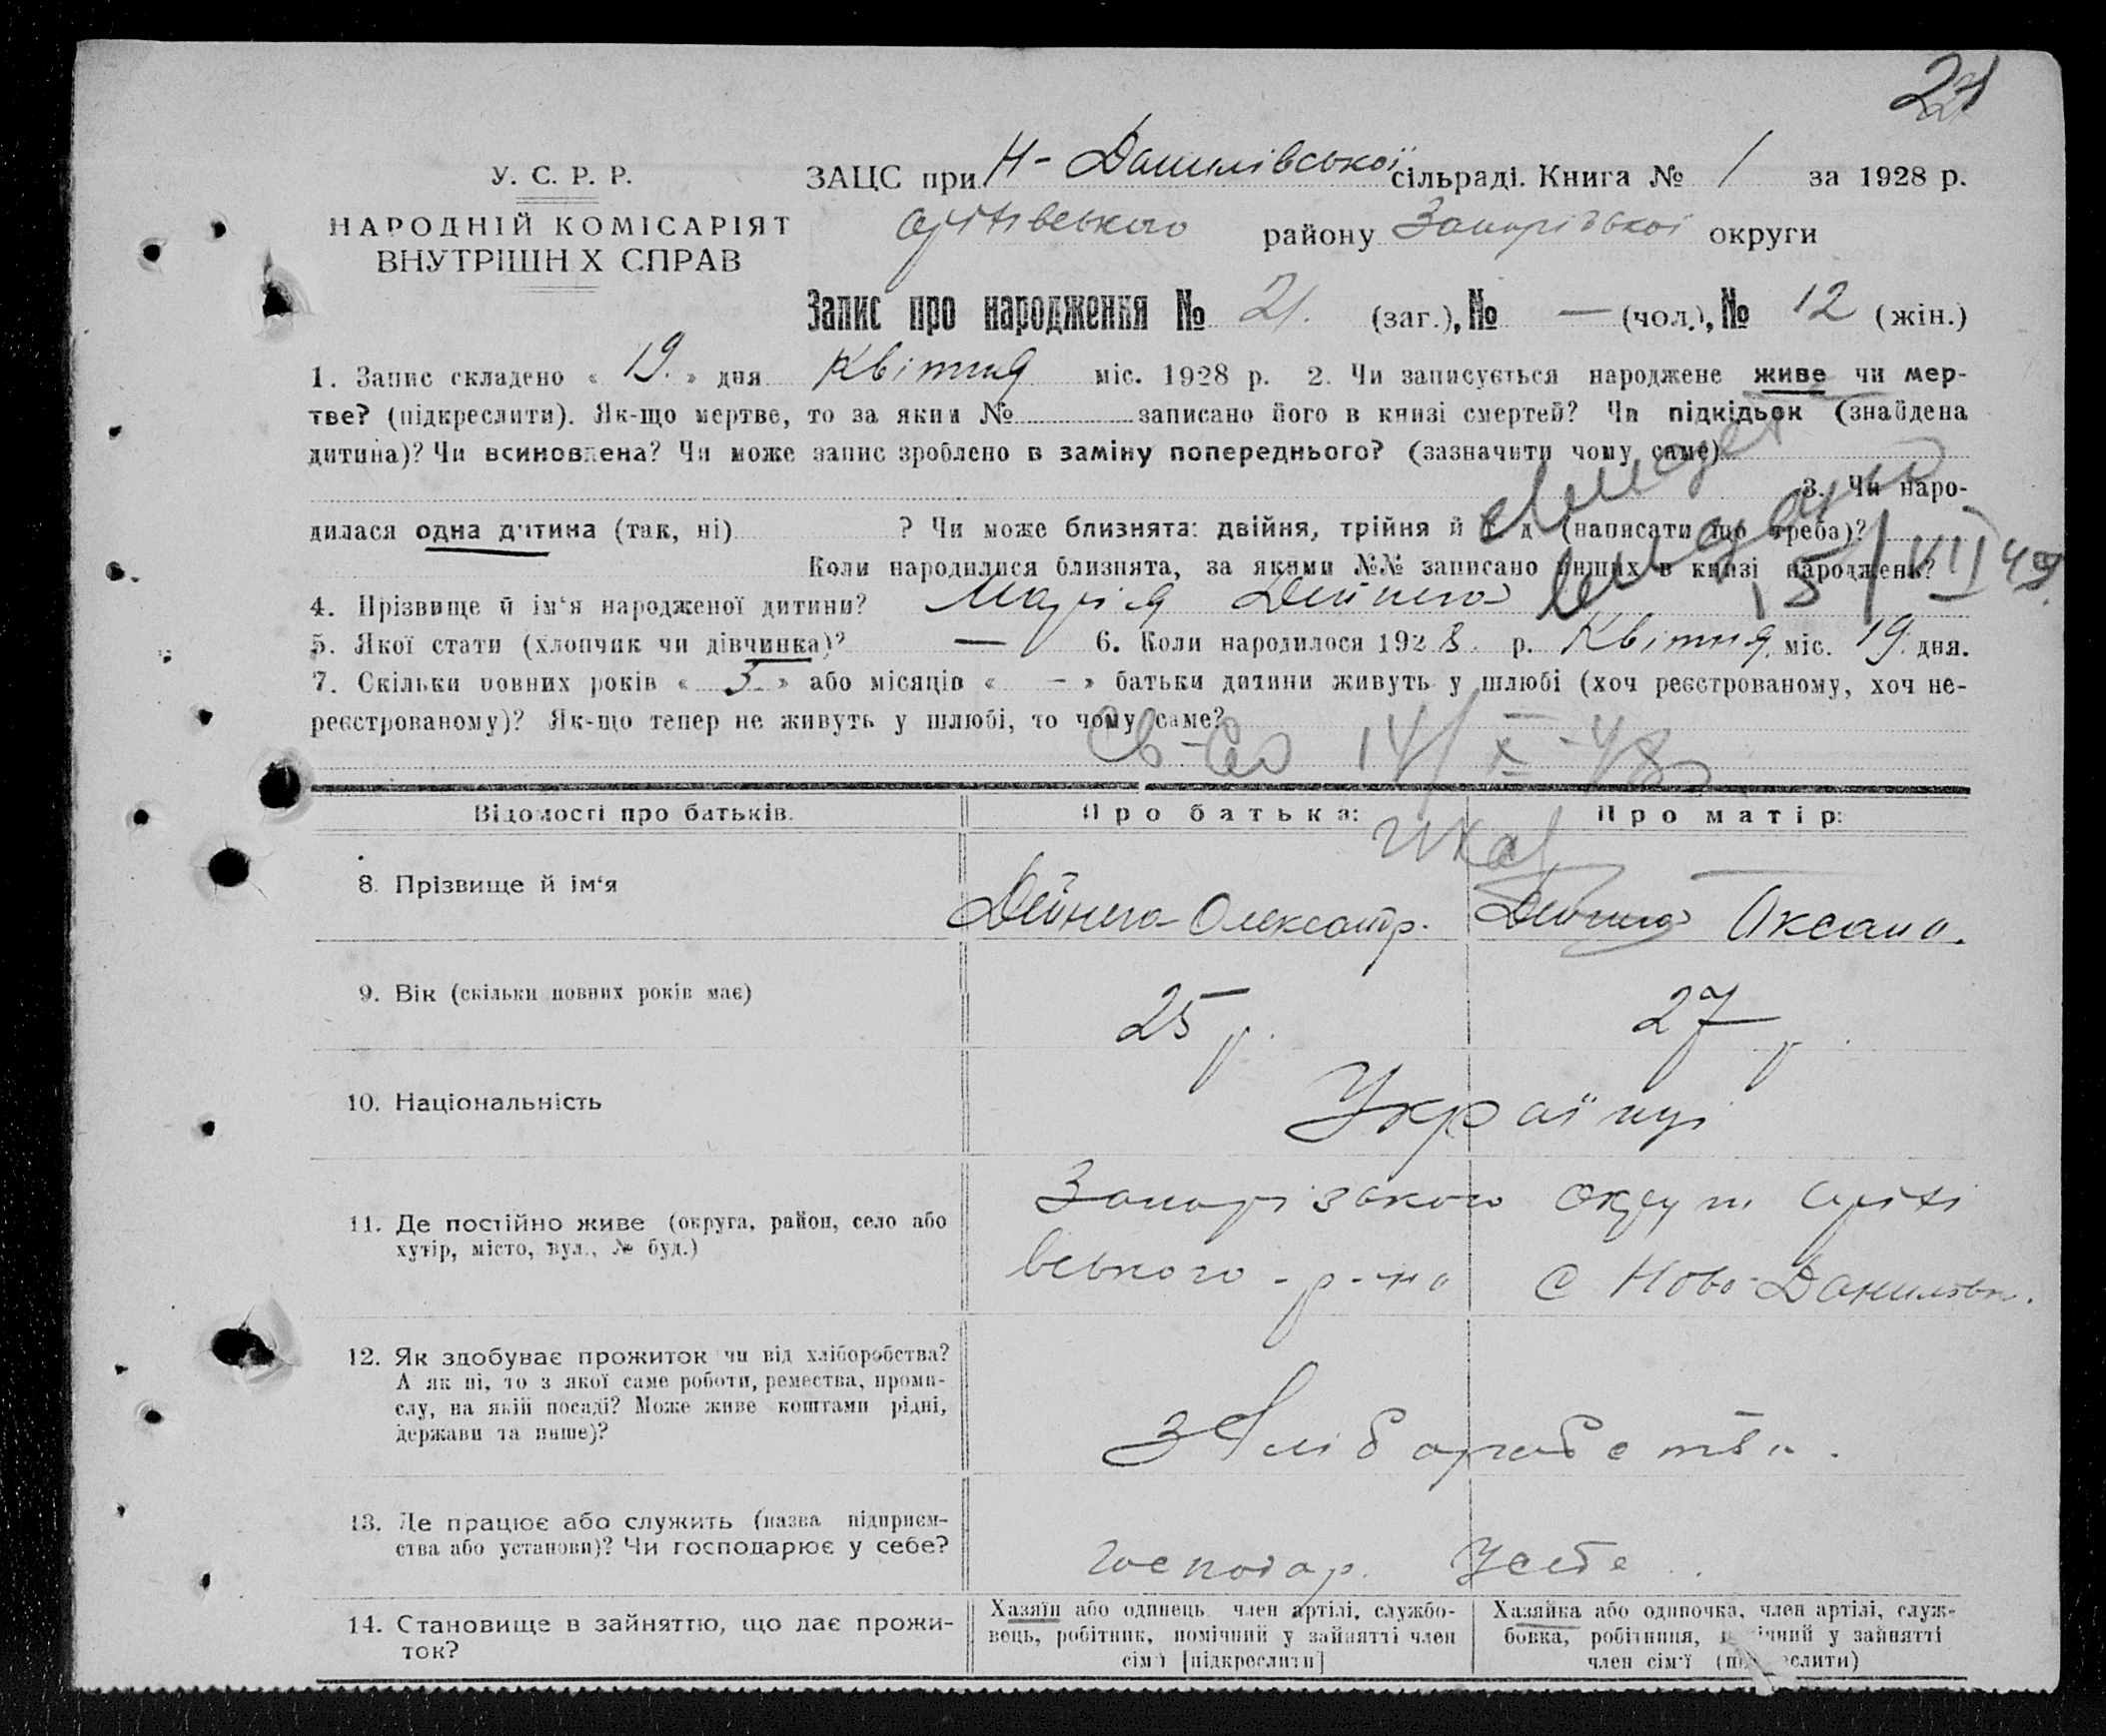 У. С. Р. Р.
НАРОДНІЙ КОМІСАРІЯТ
ВНУТРІШН Х СПРАВ
ЗАЦС при Н-Данилівської сільраді. Книга № 1 за 1928 р.
району Запорізької округи
Запис про народження № 21. (заг.), № — (чол.), № 12 (жін.)
1. Запис складено « 19. » дня Квітня міс. 1928 р. 2. Чи записується народжене живе чи мер-
тве? (підкреслити). Як-що мертве, то за яким № записано його в книзі смертей? Чи підкідьок (знайдена
дитина)? Чи всиновлена? Чи може запис зроблено в заміну попереднього? (зазначити чому саме)
3. Чи наро-
дилася одна дитина (так, ні) ? Чи може близнята: двійня, трійня й т д (написати що треба)?
Коли народилися близнята, за якими №№ записано инших в книзі народжень?
15/VII 49
4. Прізвище й ім'я народженої дитини? Марія Дейнега
5. Якої стати (хлопчик чи дівчинка)? — 6. Коли народилося 1928 р. Квітня міс. 19. дня.
7. Скільки повних років « 5 » або місяців « - » батьки дитини живуть у шлюбі (хоч реєстрованому, хоч не-
реєстрованому)? Як-що тепер не живуть у шлюбі, то чому саме?
Св-во 14/X-48
Відомості про батьків. Про батька: Про матір:
8. Прізвище й ім'я Дейнега Олександр. Дейнега Оксана.
9. Вік (скільки повних років має) 25 р. 27 р.
10. Національність Українці
11. Де постійно живе (округа, район, село або
хутір, місто, вул., № буд.)
Запорізького округи
вського р-на с Ново-Данилівки.
12. Як здобуває прожиток чи від хліборобства?
А як ні, то з якої саме роботи, ремества, проми-
слу, на якій посаді? Може живе коштами рідні,
держави та инше)?
З Хліборобства.
13. Де працює або служить (назва підприєм-
ства або установи)? Чи господарює у себе?
Господар. Усебе.
14. Становище в зайняттю, що дає прожи-
ток?
Хазяїн або одинець член артілі, службо-
вець, робітник, помічний у зайнятті член
сім'ї [підкреслити]
Хазяйка або одиночка, член артілі, служ-
бовка, робітниця, помічний у зайнятті
член сім'ї (підкреслити)